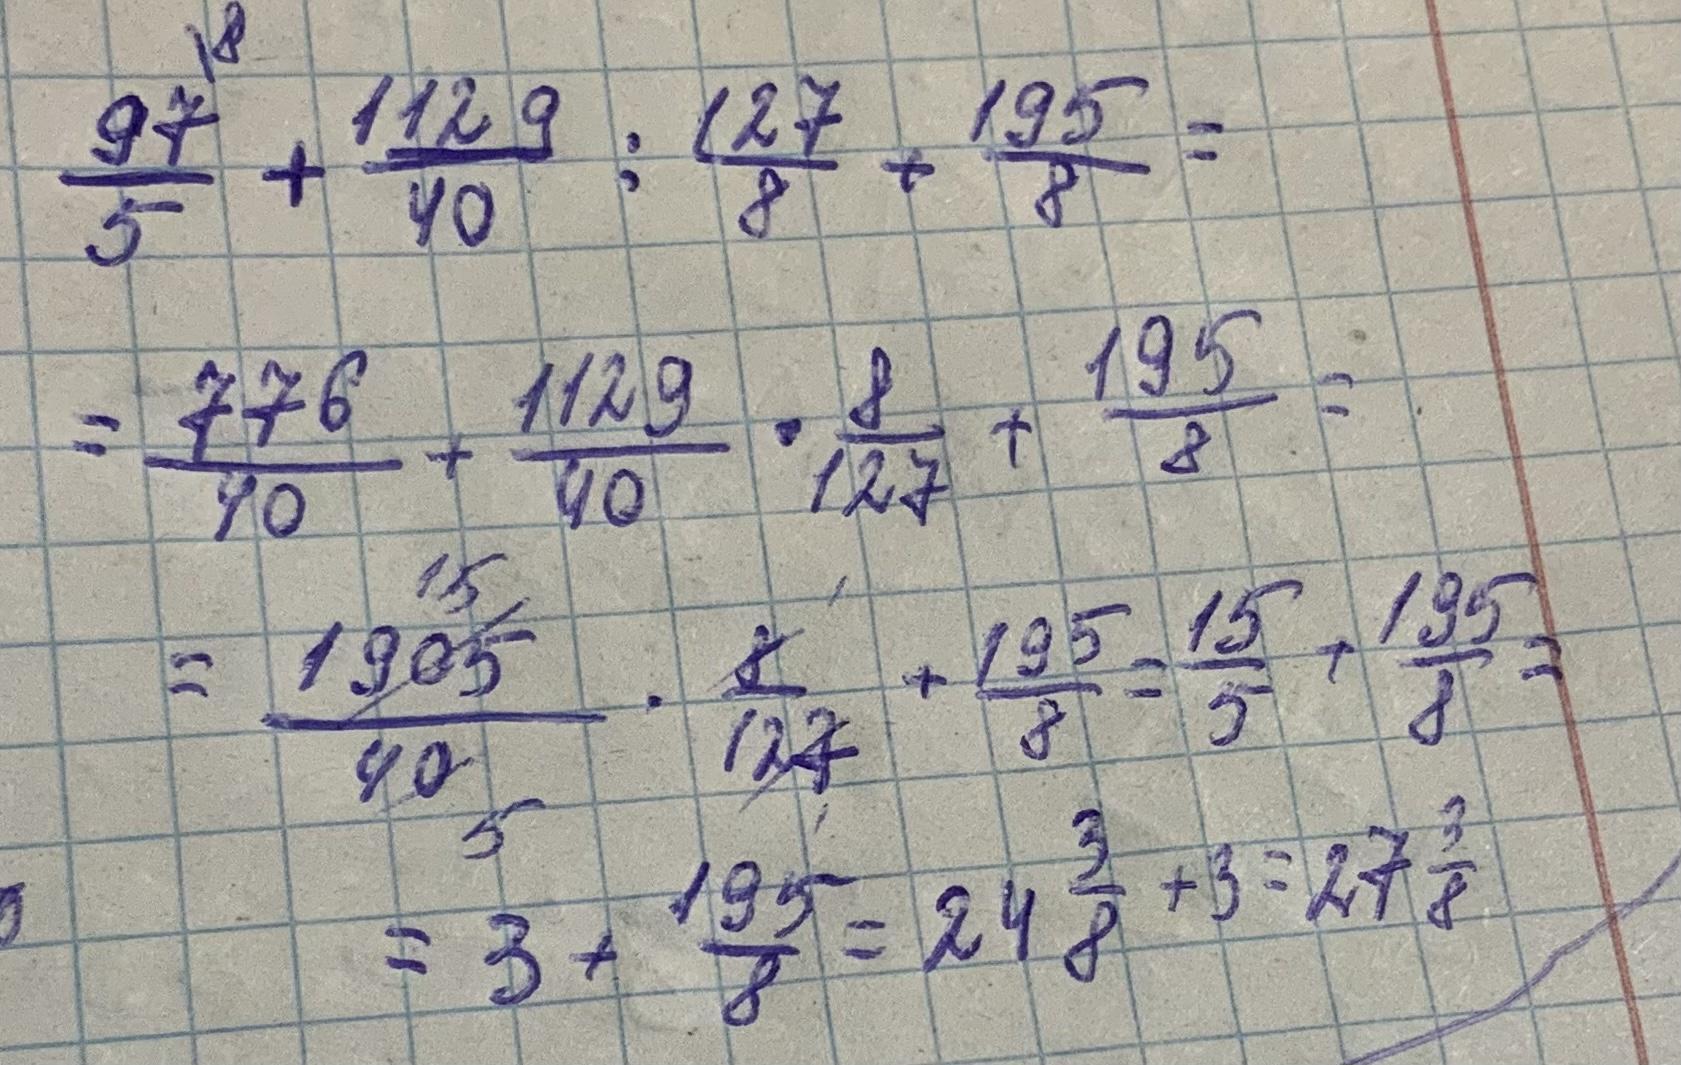 97/5 \8 + 1129/40 : 127/8 + 195/8 =
= 776/40 + 1129/40 · 8/127 + 195/8 =
= 1905/40 15 5 · 8/127 1 1 + 195/8 = 15/5 + 195/8 =
= 3 + 195/8 = 24 3/8 + 3 = 27 3/8